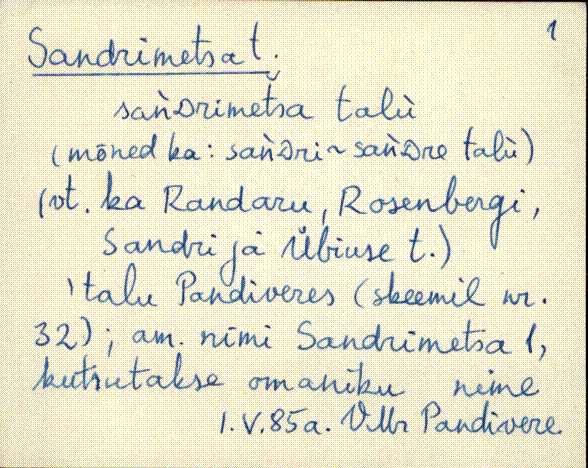 1
Sandrimetsa t.
sańᴅrimetsa talù
(mõned ka: sańᴅri ~ sańᴅre talù)
(vt. ka Randaru, Rosenbergi,
Sandri ja Übiuse t.)
'talu Pandiveres (skeemil nr.
32); am. nimi Sandrimetsa 1,
kutsutakse omaniku nime
1.V.85a. VMr Pandivere